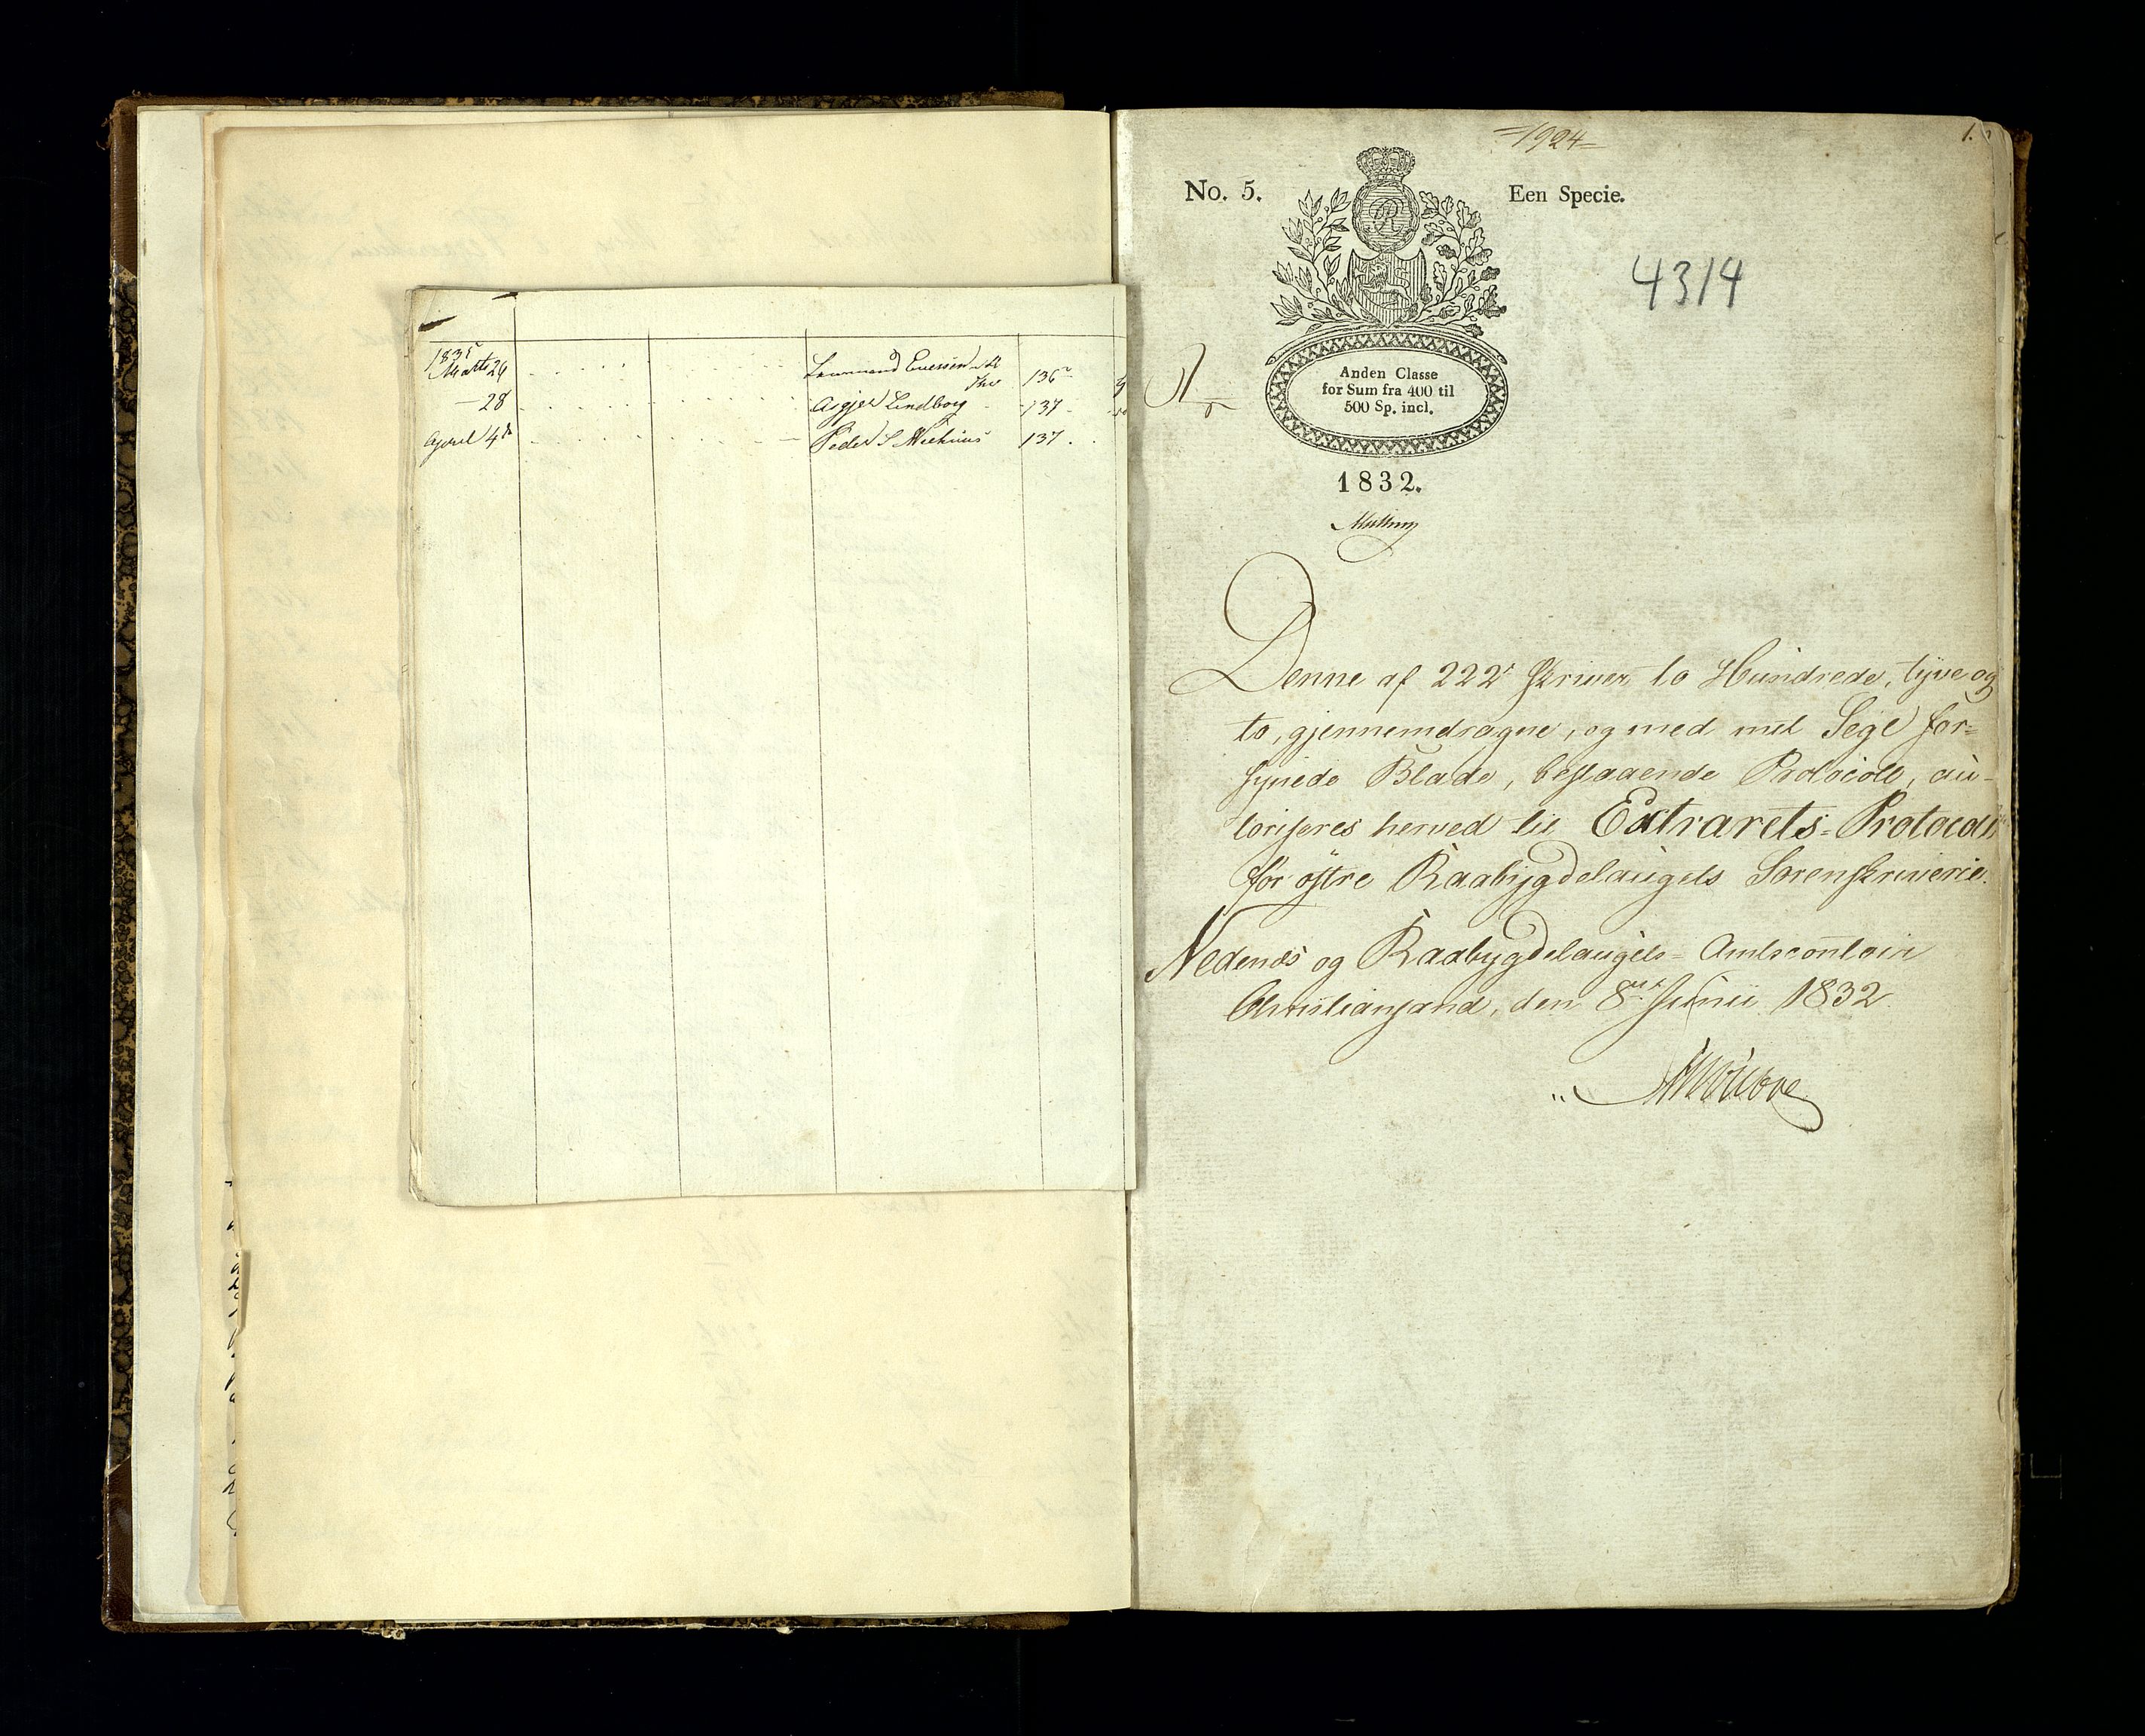 1835
Marts 26 136
- 28 Asgjer Lindborg 137
April 4de Peder S 137.
=1924=
1.
No. 5.
Een Specie.
4314
Anden Classe
for Sum fra 400 til
500 Sp. incl.
1832.
Denne af 222 skriver to Hundrede, tyve og
to, gjennemdragne, og med mit Segl for-
synede Blade, bestaaende Protocoll, au-
toriseres herved til Extrarets-Protocoll
for østre Raabygdelaugets Sorenskriverie.
Nedenæs og Raabygdelaugets-Amtscontoir
Christiansand, den 8de Junii 1832